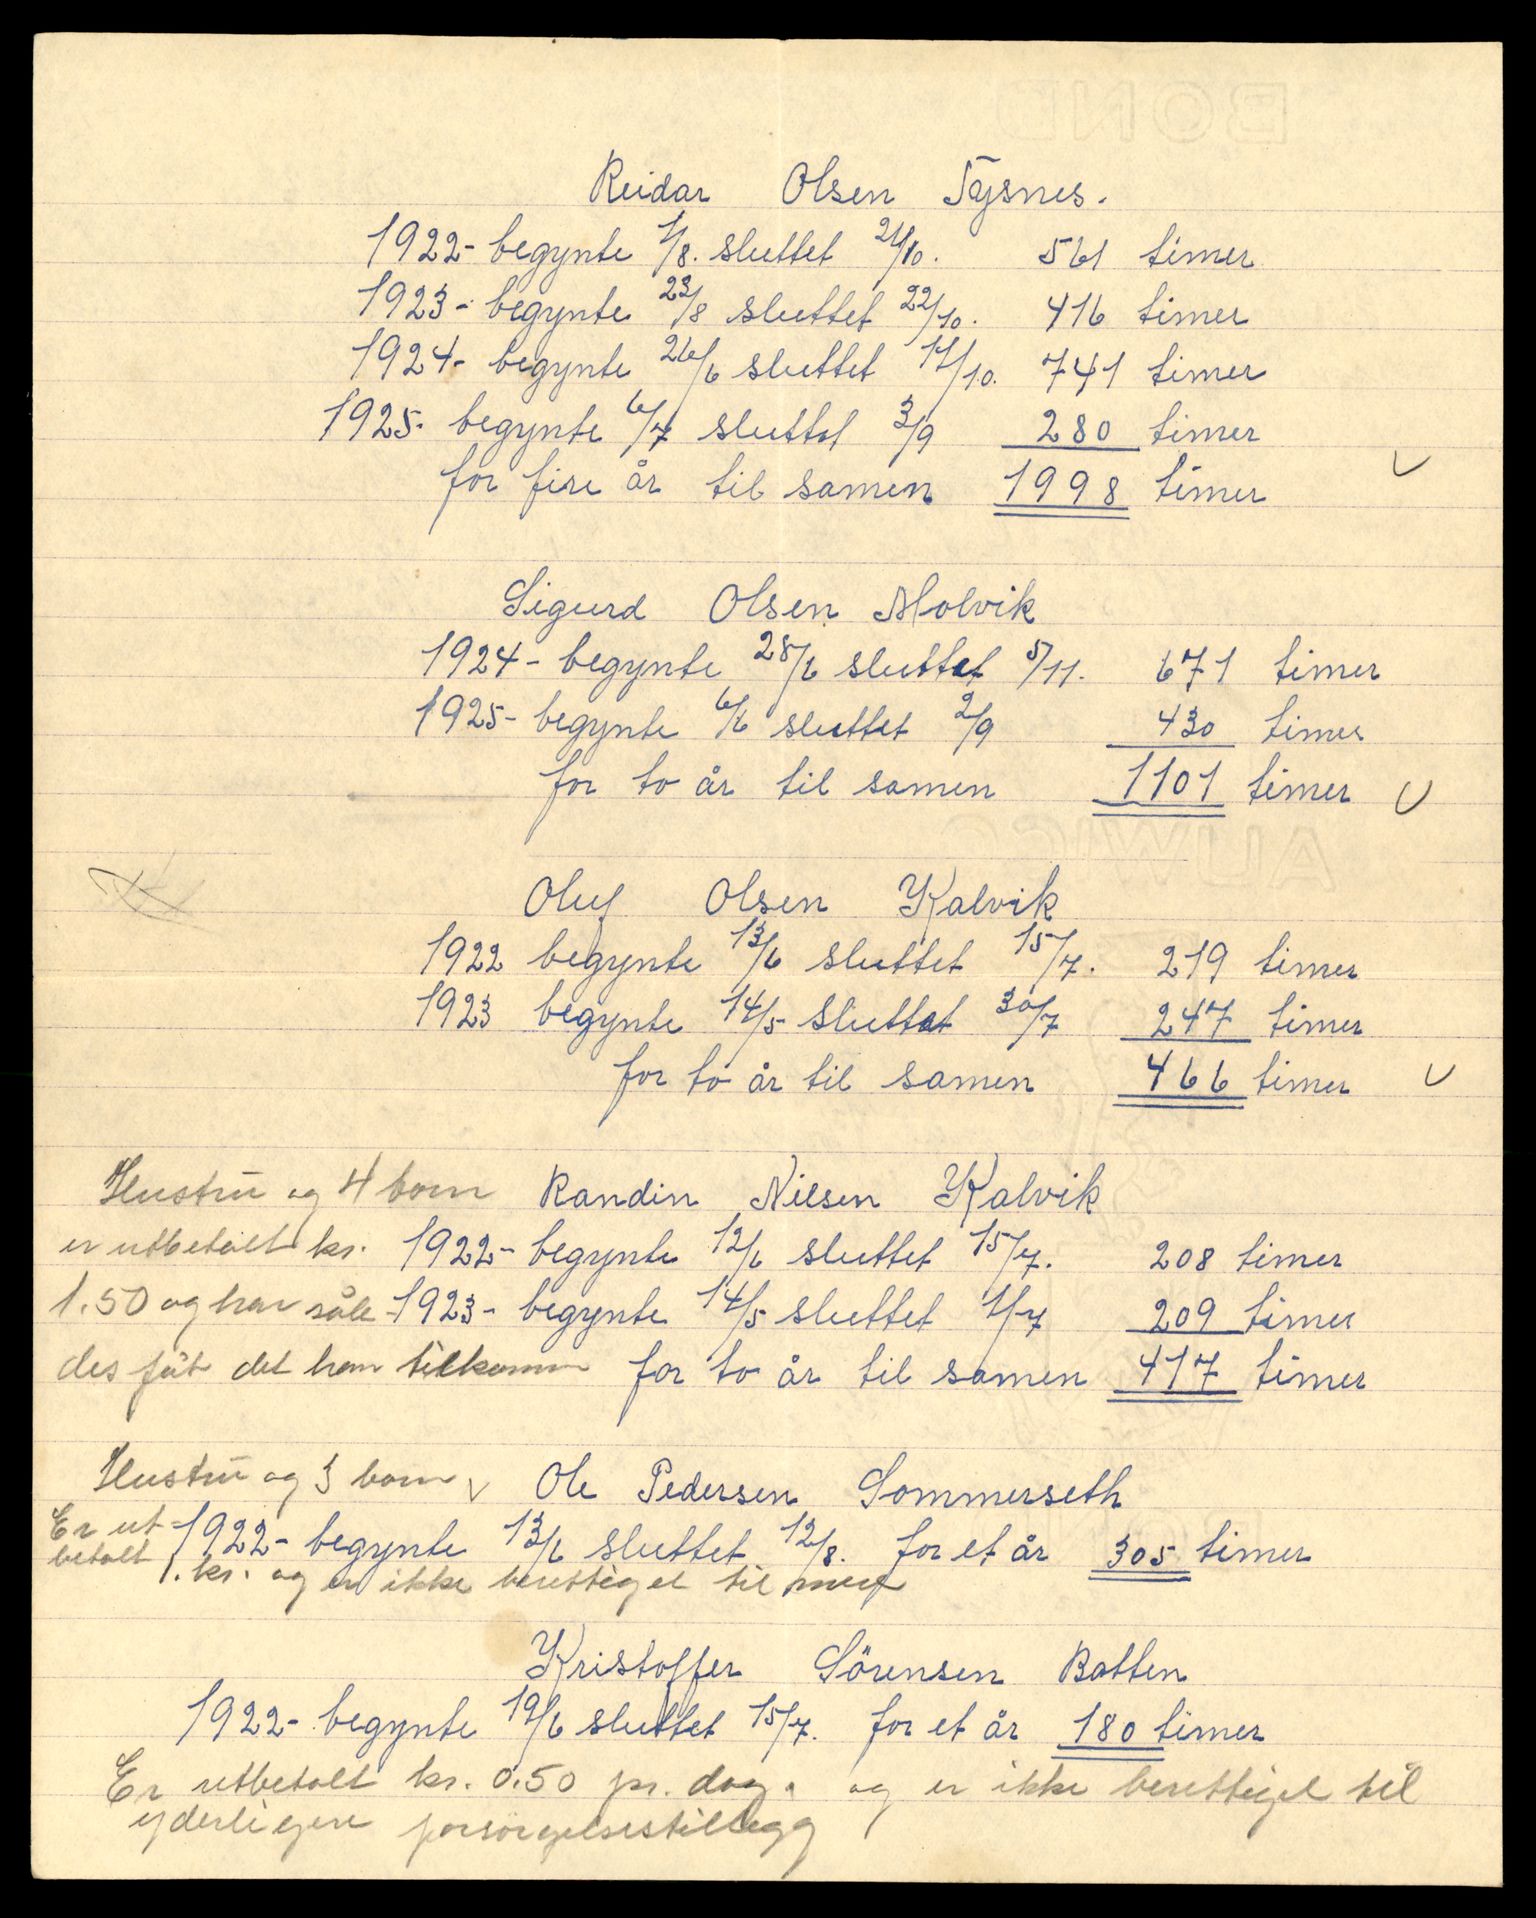 BOND
Reidar Olsen Tysnes.
1922- begynte 1/8. sluttet 21/10. 561 timer
1923- begynte 23/8 sluttet 22/10. 416 timer
1924- begynte 26/6 sluttet 14/10. 741 timer
1925- begynte 6/7 sluttet 3/9 280 timer
for fire år til samen 1998 timer
Sigurd Olsen Molvik
1924- begynte 28/6 sluttet 5/11. 671 timer
1925- begynte 6/6 sluttet 2/9 430 timer
for to år til samen 1101 timer
Oluf Olsen Kalvik
1922 begynte 13/6 sluttet 15/7. 219 timer
1923 begynte 14/5 sluttet 30/7 247 timer
for to år til samen 466 timer
Hustru og 4 born Randin Nilsen Kalvik
er utbetalt kr. 1922- begynte 12/6 sluttet 15/7. 208 timer
1.50 og har såle- 1923- begynte 14/5 sluttet 1/7 209 timer
des fåt det ham tilkomm for to år til samen 417 timer
Hustru og 3 born Ole Pedersen Sommerseth
Er ut- 1922- begynte 13/6 sluttet 12/8. for et år 305 timer
betalt 1. kr. og er ikke berettiget til mere
Kristoffer Sörensen Botten
1922- begynte 19/6 sluttet 15/7. for et år 180 timer
Er utbetalt kr. 0.50 pr. dag. og er ikke berettiget til
yderligere forsörgelsestillegg